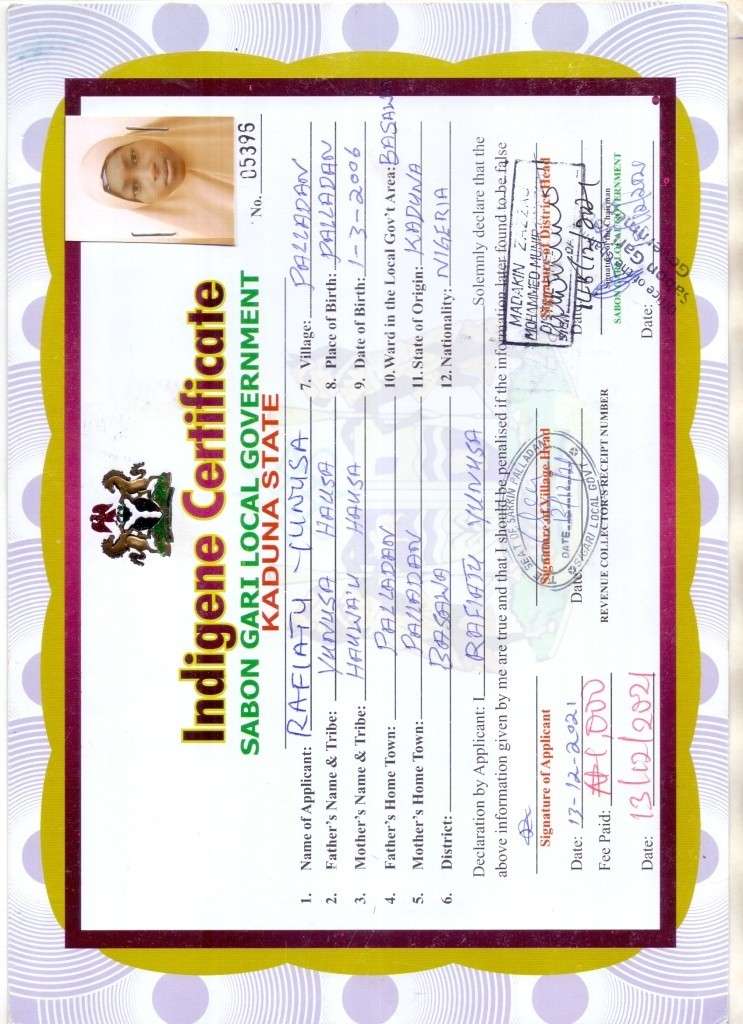 No. 05396
Indigene Certificate
SABON GARI LOCAL GOVERNMENT
KADUNA STATE
1. Name of Applicant: RAFIATU YUNUSA
2. Father's Name & Tribe: YUNUSA HAUSA
3. Mother's Name & Tribe: HAUWA'U HAUSA
4. Father's Home Town: PALLADAN
5. Mother's Home Town: PALLADAN
6. District: BASAWA
7. Village: PALLADAN
8. Place of Birth: PALLADAN
9. Date of Birth: 1-3-2006
10. Ward in the Local Gov't Area: BASAW
11. State of Origin: KADUNA
12. Nationality: NIGERIA
Declaration by Applicant: I RAFIATU YUNUSA Solemnly declare that the
above information given by me are true and that I should be penalised if the information later found to be false
Signature of Applicant
Date: 13-12-2021
Fee Paid: ₦1,000
Date: 13/12/2021
Signature of Village Head
Date:
SEAT OF SARKIN PALLADAN
DATE
S/GARI LOCAL GOVT
REVENUE COLLECTOR'S RECEIPT NUMBER
MADAKIN
MOHAMMED MUNIR
Signature of District Head
Date:
Signature of the Chairman
SABON GARI LOCAL GOVERNMENT
Office of the
Sabon Gari
Date: